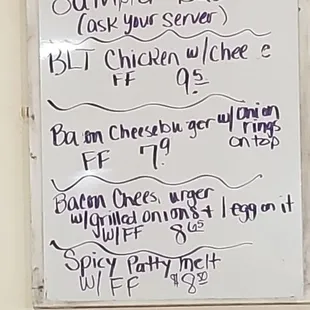 (ask your server)
BLT Chicken w/chee e
FF 9.5
Bacon Cheesebu ger w/onion
rings
on top
FF 7.9
Bacon Chees urger
w/grilled onions + 1 egg on it
w/FF 8.65
Spicy Patty melt
w/ FF $8